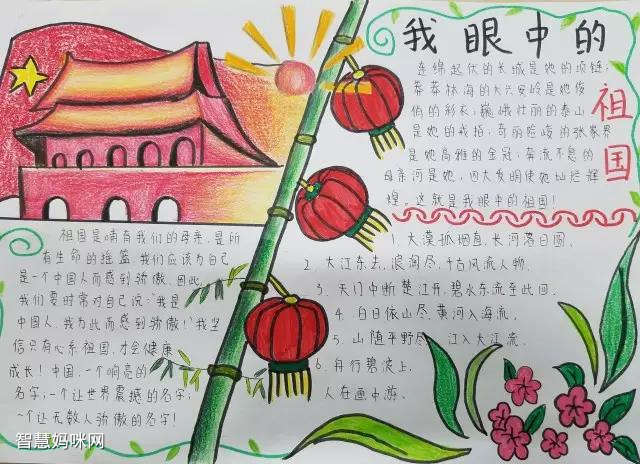 我眼中的
祖
国
连绵起伏的长城是她的项链;
莽莽林海的大兴安岭是她俊
俏的彩衣;巍峨壮丽的泰山
是她的戒指;奇丽险峻的张家界
是她高雅的金冠;奔流不息的
母亲河是她,四大发明使她灿烂辉
煌。这就是我眼中的祖国!
1.大漠孤烟直,长河落日圆.
2.大江东去,浪淘尽,千古风流人物.
3.天门中断楚江开,碧水东流至此回.
4.白日依山尽,黄河入海流.
5.山随平野尽,江入大江流.
6.舟行碧波上,
人在画中游.
祖国是哺育我们的母亲,是所
有生命的摇篮,我们应该为自己
是一个中国人而感到骄傲.因此,
我们要时常对自己说:"我是
中国人,我为此而感到骄傲!"我坚
信只有心系祖国,才会健康
成长!中国,一个响亮的
名字;一个让世界震撼的名字;
一个让无数人骄傲的名字!
智慧妈咪网